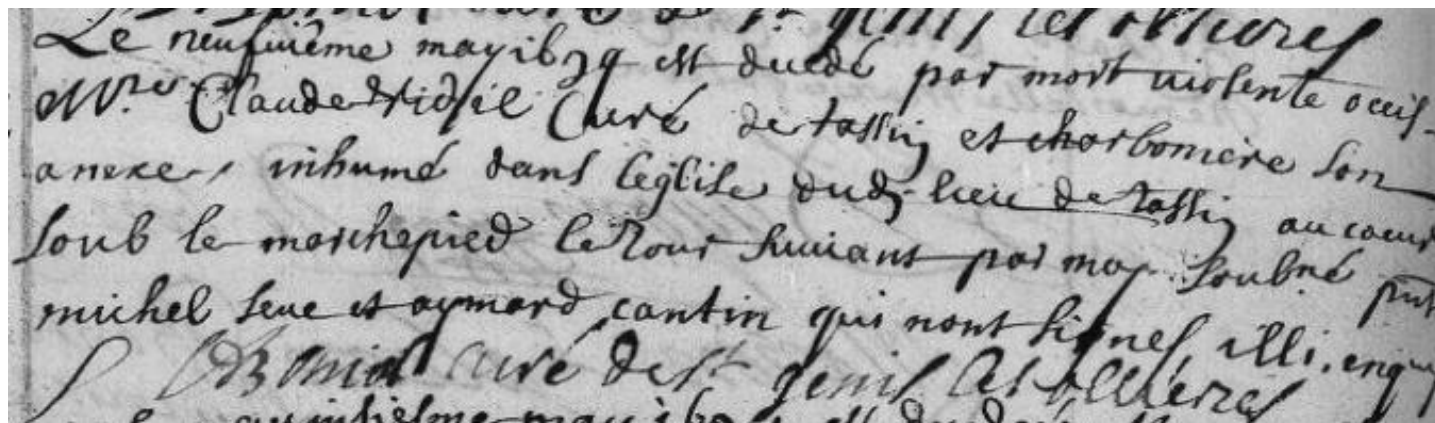 curé de St genis les ollieres
Le neufuiême may 1679 est decedé par mort uiolente occis
Mre Claude Curé de tassin et charboniere son
anexe, inhumé dans l'église dud. lieu de tassin au coeur
soub le marchepied le jour suiuant par moy soubné pnt
michel seue et aymard cantin qui nont signes illi. enquis
curé de St genis les ollieres
may est decedé